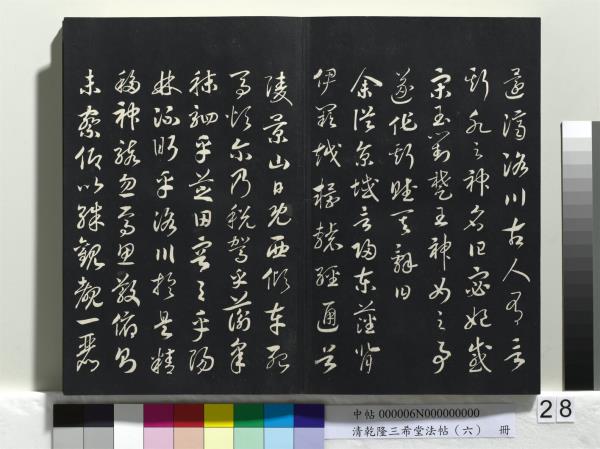 還濟洛川古人有言
斯水之神名曰宓妃感
宋玉對楚王神女之事
遂作斯賦其辭曰
余從京域言歸東藩背
伊闕越轘轅經通谷
陵景山日既西傾車殆
馬煩爾乃稅駕乎蘅皋
秣駟乎芝田容與乎陽
林流眄乎洛川於是精
移神駭忽焉思散俯則
未察仰以殊觀覩一麗
中帖 000006N000000000
清乾隆三希堂法帖（六） 冊
28